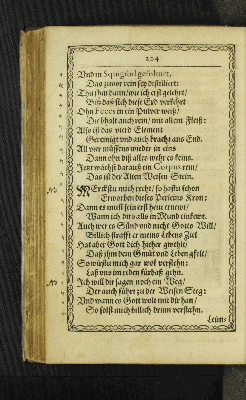 204
Und in Sqingibul gesoluirt,
Das zuvor rein sey destilliert:
Thu ihm dann / wie ich erst gelehrt /
Biß daß sich diese Erd verkehrt
Ohn Feces in ein Pulver weiß /
Die bhalt auch rein / mit allem Fleiß:
Also ist das vierd Element
Gereinigt und auch bracht ans End.
All vier müssens wieder in eins
Dann ohn diß alles mehr es keins.
Jetzt wächst darauß ein Corpus rein /
Das ist der Alten Weisen Stein.
Merckstu mich recht / so hastu schon
Erworben dieses Perseius Kron:
Dann es muß sein erst hoc
Wann ich dirs alls in Mund einkewt.
Auch wer es Sünd und nicht Gottes Will /
Billich strafft er meins Lebens Ziel
Hat aber Gott dich hieher gwehlt /
Daß ihm dein Gmüt und Leben gfelt /
So wirstu mich gar wol verstehn:
Laß uns im reden fürbaß gehn.
Ich will dir sagen noch ein Weg /
Der auch führt zu der Weisen Steg:
Und wann es Gott wolt mit dir han /
So solst mich billich drinn verstahn.